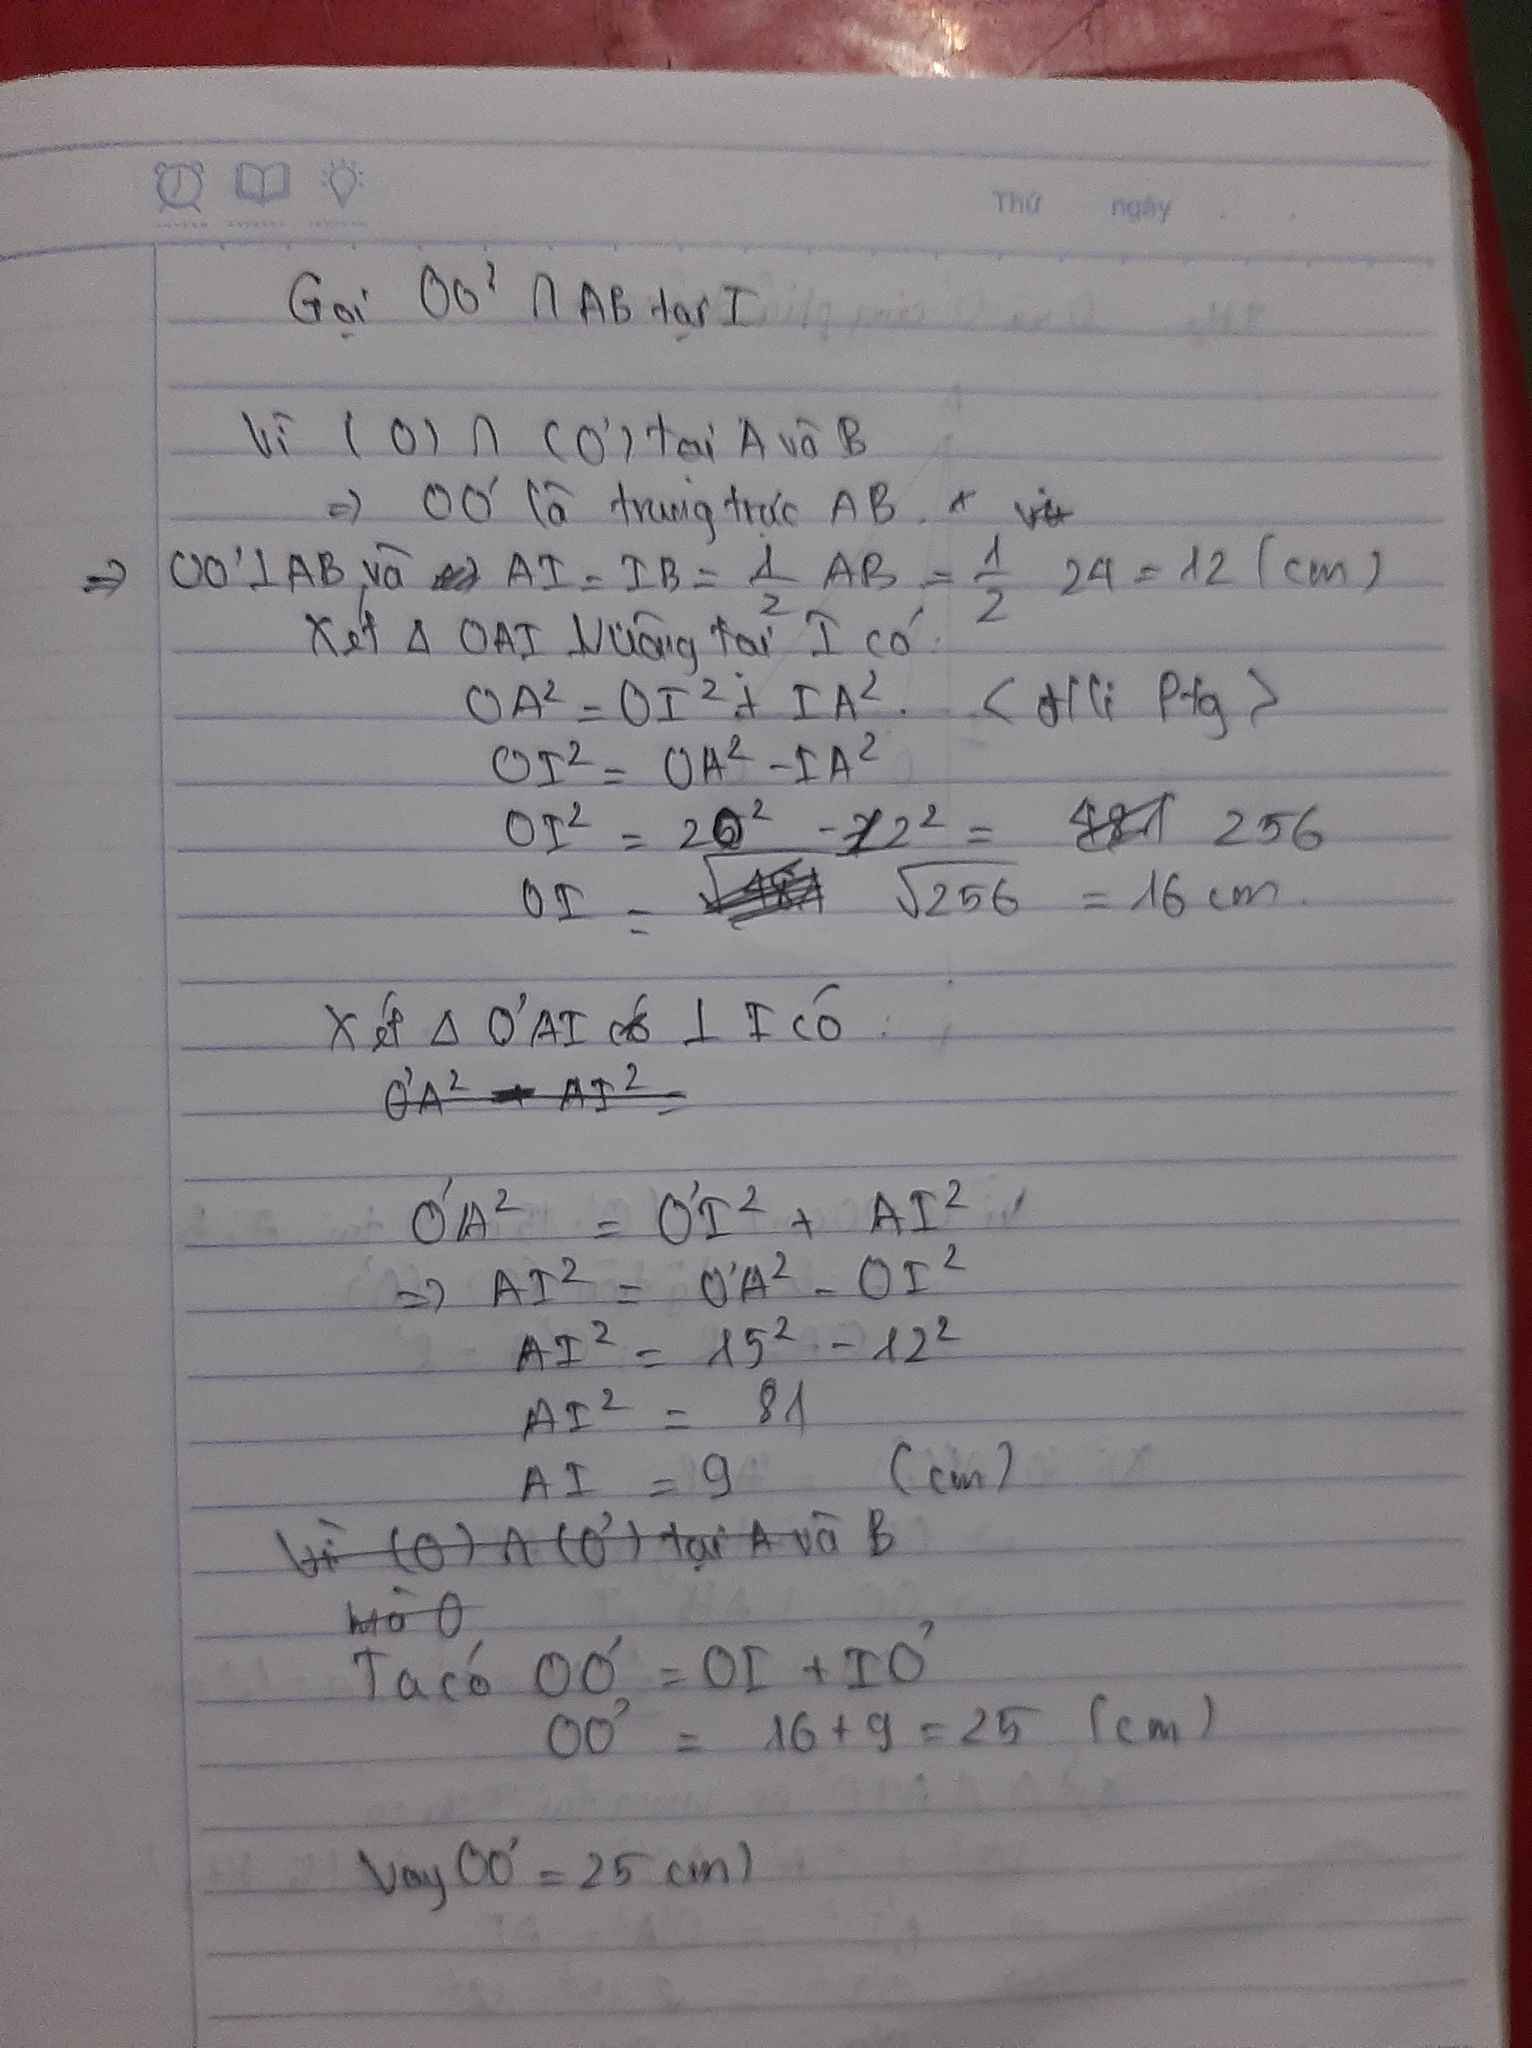 Thứ ngày
Gọi OO' ∩ AB tại I
Vì (O) ∩ (O') tại A và B
=> OO' là trung trực AB.
=> OO' ⊥ AB và AI = IB = 1/2 AB = 1/2 24 = 12 (cm)
Xét Δ OAI vuông tại I có:
OA² = OI² + IA². < đlí Ptg >
OI² = OA² - IA²
OI² = 20² - 12² = 256
OI = √256 = 16 cm.
Xét Δ O'AI ⊥ I có:
O'A² - AI² =
O'A² = O'I² + AI²
=> AI² = O'A² - OI²
AI² = 15² - 12²
AI² = 81
AI = 9 (cm)
Vì (O) ∩ (O') tại A và B
Mà O
Ta có OO' = OI + IO'
OO' = 16 + 9 = 25 (cm)
Vay OO' = 25 cm)